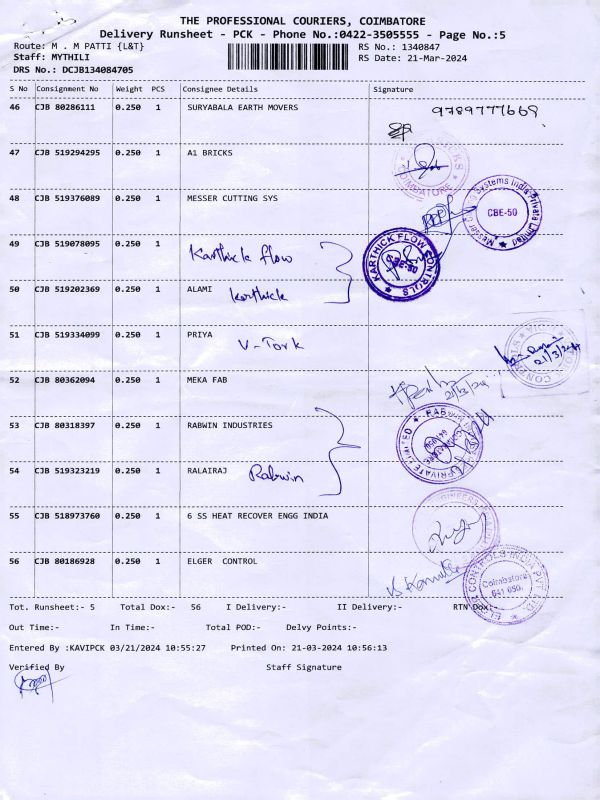 THE PROFESSIONAL COURIERS, COIMBATORE
Delivery Runsheet - PCK - Phone No.:0422-3505555 - Page No.:5
Route: M . M PATTI {L&T}
RS No.: 1340847
Staff: MYTHILI
RS Date: 21-Mar-2024
DRS No.: DCJB134084705
S No Consignment No Weight PCS Consignee Details Signature
46 CJB 80286111 0.250 1 SURYABALA EARTH MOVERS 9789777669
47 CJB 519294295 0.250 1 A1 BRICKS
48 CJB 519376089 0.250 1 MESSER CUTTING SYS
Systems India Private Limited
CBE-50
49 CJB 519078095 0.250 1 Karthick flow
KARTHICK FLOW CONTROLS
CBE-50
50 CJB 519202369 0.250 1 ALAMI Karthick
51 CJB 519334099 0.250 1 PRIYA V-Tork
21/3/24
52 CJB 80362094 0.250 1 MEKA FAB
21/3/24
53 CJB 80318397 0.250 1 RABWIN INDUSTRIES
PRIVATE LIMITED
54 CJB 519323219 0.250 1 RALAIRAJ Rabwin
55 CJB 518973760 0.250 1 6 SS HEAT RECOVER ENGG INDIA
56 CJB 80186928 0.250 1 ELGER CONTROL
CONTROLS INDIA PVT LTD
Coimbatore
641 050.
Tot. Runsheet:- 5 Total Dox:- 56 I Delivery:- II Delivery:- RTN Dox:-
Out Time:- In Time:- Total POD:- Delvy Points:-
Entered By :KAVIPCK 03/21/2024 10:55:27 Printed On: 21-03-2024 10:56:13
Verified By Staff Signature